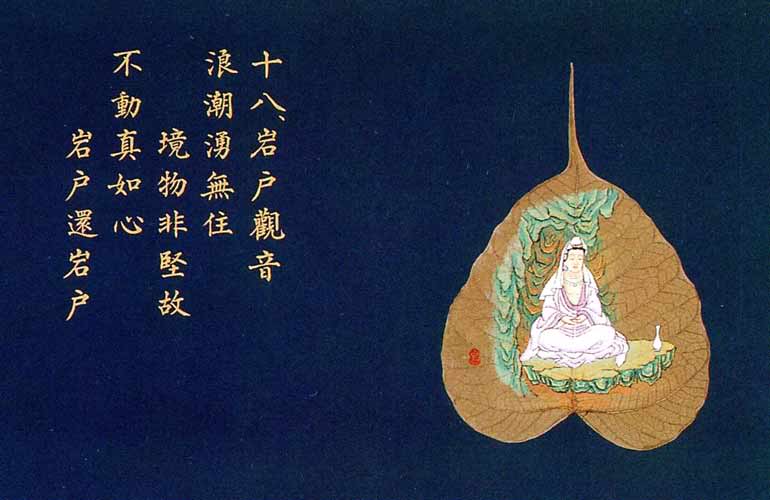 十八、岩戶觀音
浪潮湧無住
境物非堅故
不動真如心
岩戶還岩戶